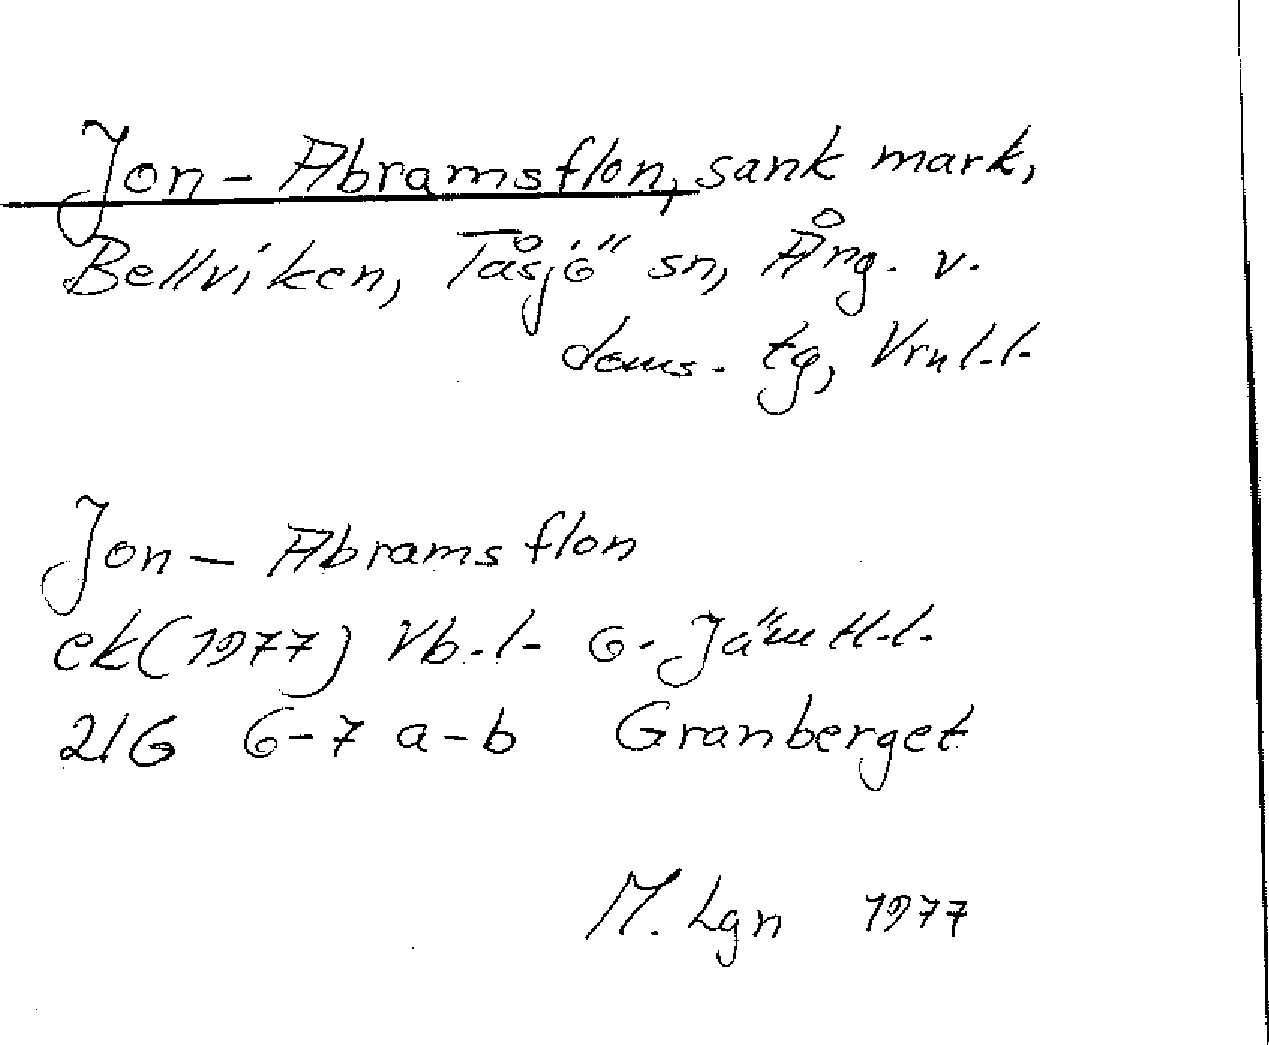 Jon-Abramsflon, sank mark,
Bellviken, Tåsjö sn, Ång. v.
doms. tg, Vrnl.l.
Jon-Abramsflon
ek(1977) Vb.l. o. Jämtl.l.
21G 6-7 a-b Granberget
M. Lgn 1977